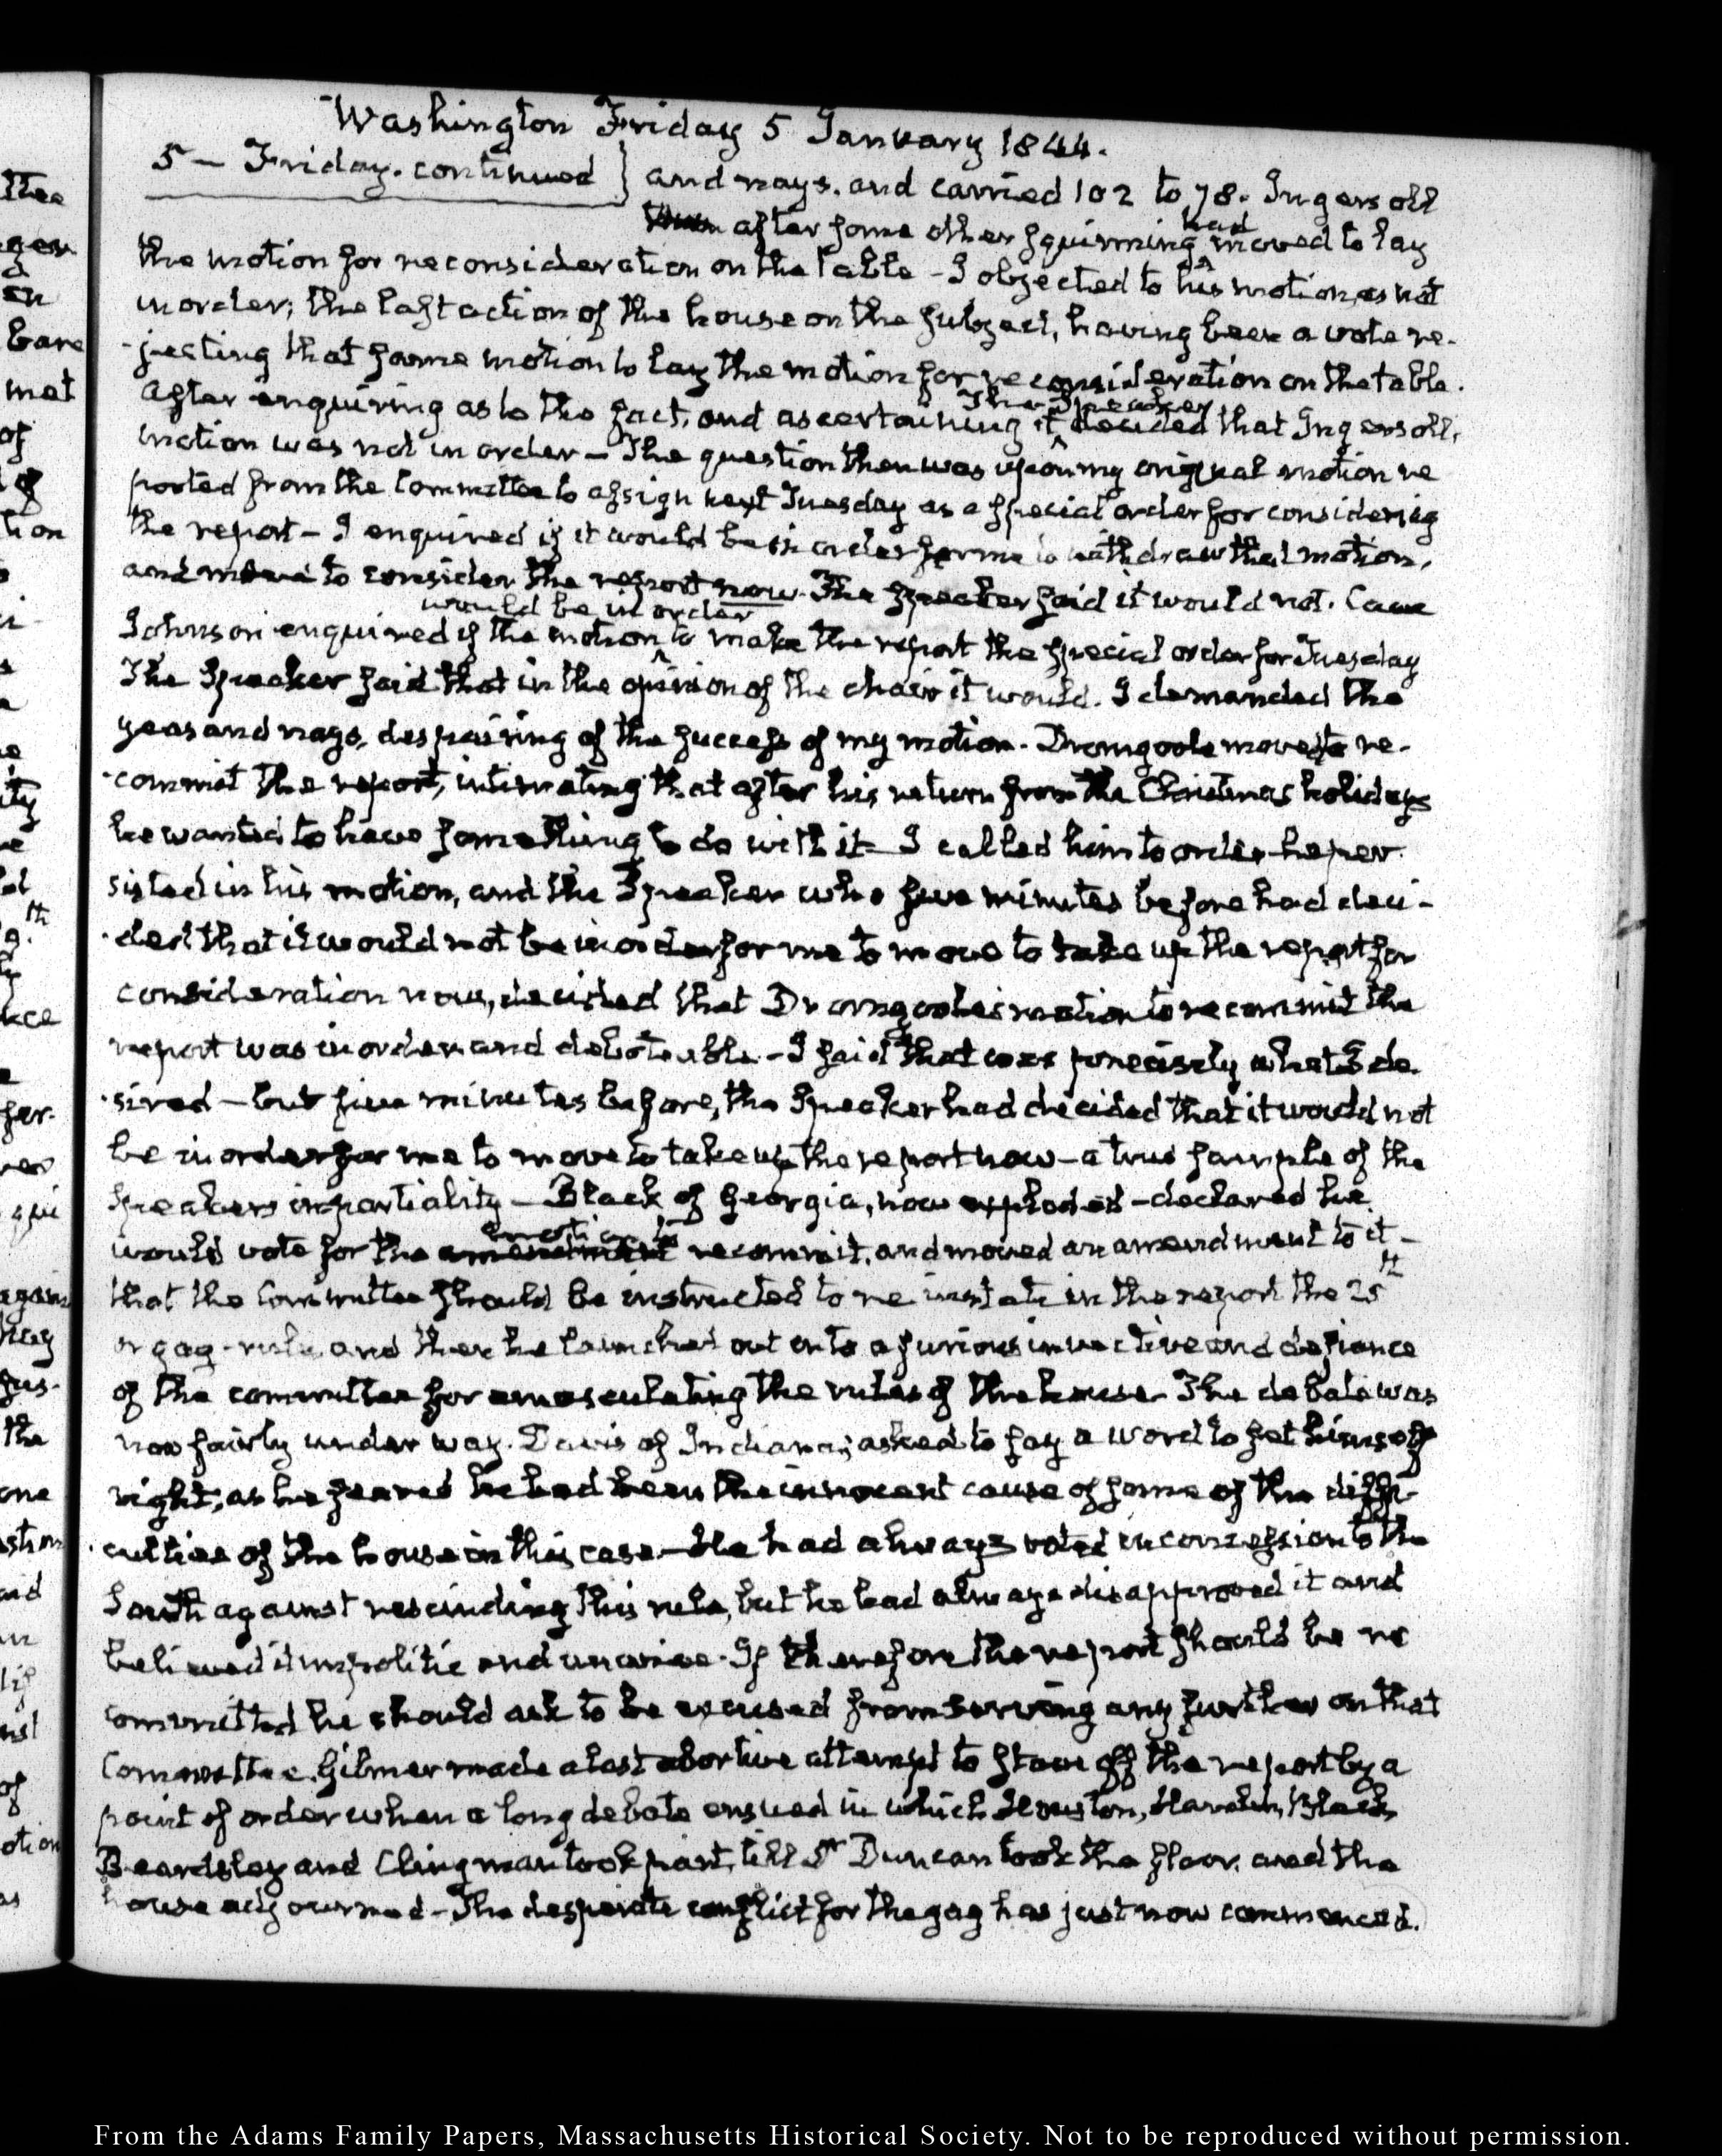 Washington Friday 5 January 1844.
5 — Friday. continued } and nays, and carried 102 to 78. Ingersoll
after some other squirming had moved to lay
the motion for reconsideration on the table - I objected to his motion, as not
in order; the last action of the house on the subject, having been a vote re-
-jecting that same motion to lay the motion for reconsideration on the table.
After enquiring as to the fact, and ascertaining it The Speaker decided that Ingersoll,
motion was not in order — The question then was upon my original motion re
ported from the Committee to assign next Tuesday as a special order for considering
the report — I enquired if it would be in order for me to withdraw that motion,
and move to consider the report now. The Speaker said it would not. Cave
Johnson enquired if the motion would be in order to make the report the special order for Tuesday
The Speaker said that in the opinion of the chair it would. I demanded the
yeas and nays, despairing of the success of my motion. Dromgoole moved to re-
-commit the report, intimating that after his return from the Christmas holidays
he wanted to have something to do with it — I called him to order - he per
sisted in his motion, and the Speaker who five minutes before had deci-
-ded that it would not be in order for me to move to take up the report for
consideration now, decided that Dromgoole's motion to recommit the
report was in order and debateable - I said that was precisely what I de
-sired — but five minutes before, the Speaker had decided that it would not
be in order for me to move to take up the report now — a true sample of the
Speakers impartiality — Black of Georgia, now exploded — declared he
would vote for the motion to recommit, and moved an amendment to it —
that the Committee should be instructed to re instate in the report the 25th
or gag-rule, and then he launched out into a furious invective and defiance
of the committee for emasculating the rules of the house. The debate was
now fairly under way. Davis of Indiana, asked to say a word to set himself
right, as he feared he had been the innocent cause of some of the diffi-
-culties of the house in this case — He had always voted in concession to the
South against rescinding this rule, but he had always disapproved it and
believed it impolitic and unwise. If therefore the report should be re
committed he should ask to be excused from serving any further on that
Committee. Gilmer made a last abortive attempt to stave off the report by a
point of order when a long debate ensued in which Houston, Hardin, Black,
Beardsley and Clingman took part, till Dr Duncan took the floor, and the
house adjourned — The desperate conflict for the gag has just now commenced.
ttee
gen
d
en
bare
met
of
of
tion
ity
th
kce
fer.
qui
again
Nay
fus-
the
one
and
of
otion
as
From the Adams Family Papers, Massachusetts Historical Society. Not to be reproduced without permission.